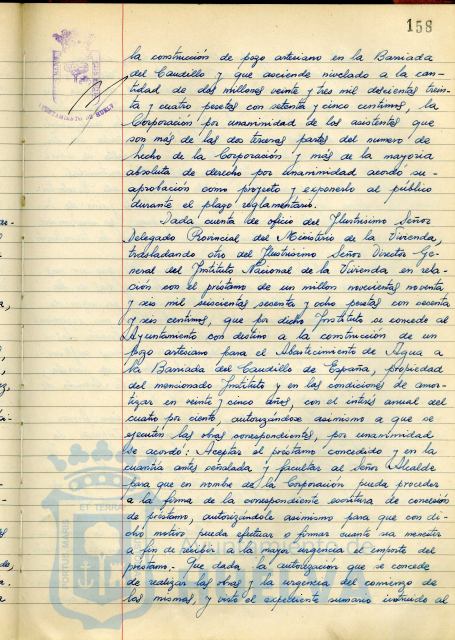 158
la construcción de pozo artesiano en la Barriada
del Caudillo y que asciende nivelado a la can-
tidad de dos millones veinte y tres mil doscientas trein-
ta y cuatro pesetas con setenta y cinco centimos, la
Corporación por unanimidad de los asistentes que
son más de las dos terceras partes del numero de
hecho de la Corporación y más de la mayoria
absoluta de derecho por unanimidad acordó su
aprobación como proyecto y exponerlo al público
durante el plazo reglamentario.
Dada cuenta de oficio del Ilustrisimo Señor
Delegado Provincial del Ministerio de la Vivienda,
trasladando otro del Ilustrisimo Señor Director Ge-
neral del Instituto Nacional de la Vivienda en rela-
ción con el préstamo de un millon novecientas noventa
y seis mil seiscientas sesenta y ocho pesetas con
y seis centimos, que por dicho Instituto se concede al
Ayuntamiento con destino a la construcción de un
pozo artesiano para el Abastecimiento de Agua a
la Barriada del Caudillo de España, propiedad
del mencionado Instituto y en las condiciones de amor-
tizar en veinte y cinco años, con el interés anual del
cuatro por ciento, autorizándose asimismo a que se
ejecuten las obras correspondientes, por unanimidad
se acordó: Aceptar el préstamo concedido y en la
cuantía antes señalada y facultar al Señor Alcalde
para que en nombre de la Corporación pueda proceder
a la firma de la correspondiente escritura de concesión
de préstamo, autorizándole asimismo para que con di-
cho motivo pueda efectuar o firmar cuanto sea menester
a fin de recibir a la mayor urgencia el importe del
préstamo.- Que dada la autorización que se concede
de realizar las obras y la urgencia del comienzo de
las mismas, y visto el expediente sumario instruido al